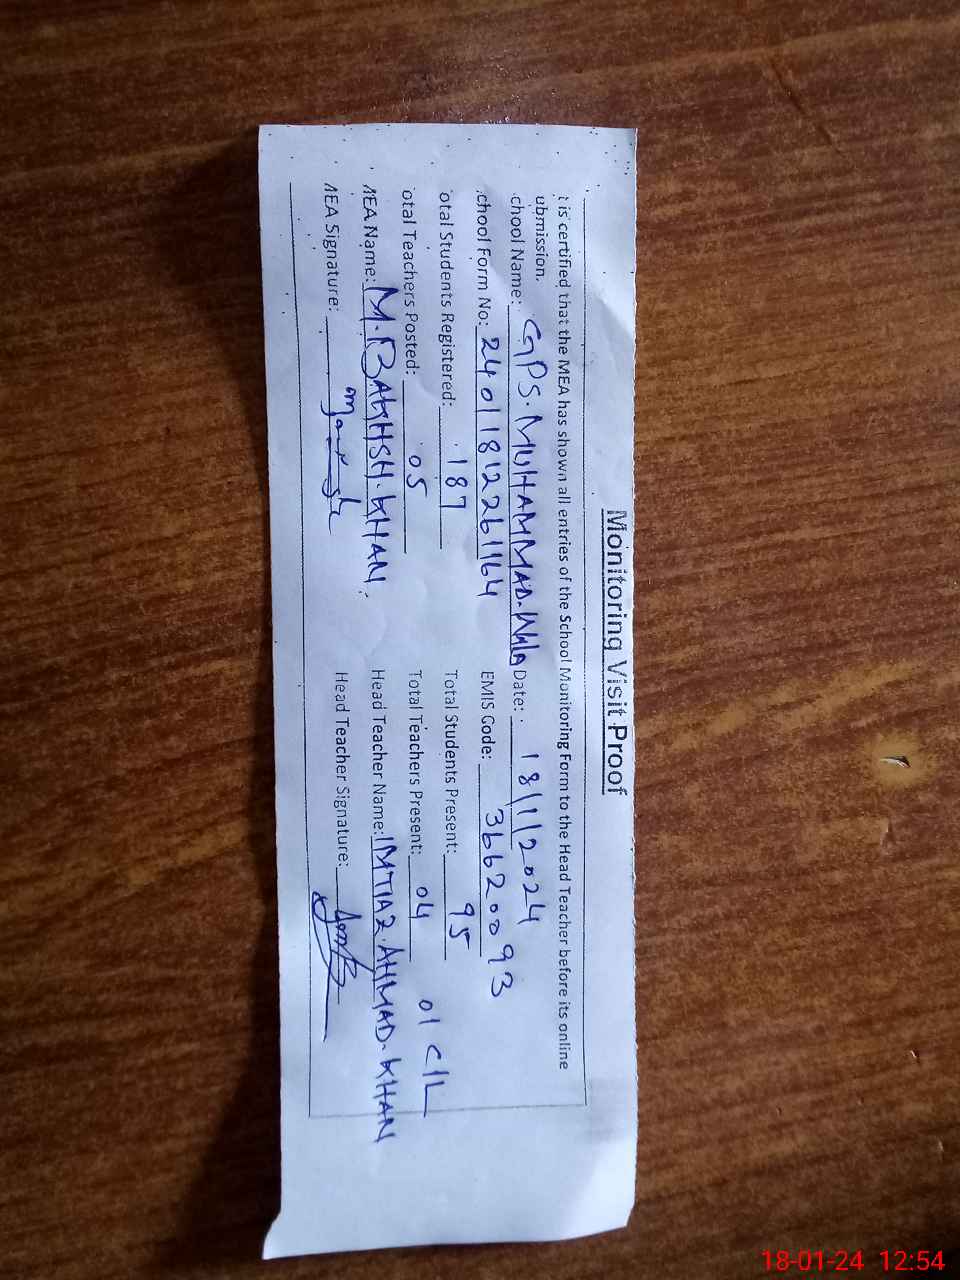 Monitoring Visit Proof
t is certified that the MEA has shown all entries of the School Monitoring Form to the Head Teacher before its online
ubmission.
chool Name: GPS. MUHAMMAD. Wala Date: 18/1/2024
chool Form No: 24011812261164 EMIS Code: 36620093
otal Students Registered: 187 Total Students Present: 95
otal Teachers Posted: 05 Total Teachers Present: 04 01 C/L
MEA Name: M. BAKHSH. KHAN. Head Teacher Name: IMTIAZ. AHMAD. KHAN
MEA Signature: Head Teacher Signature:
18-01-24 12:54